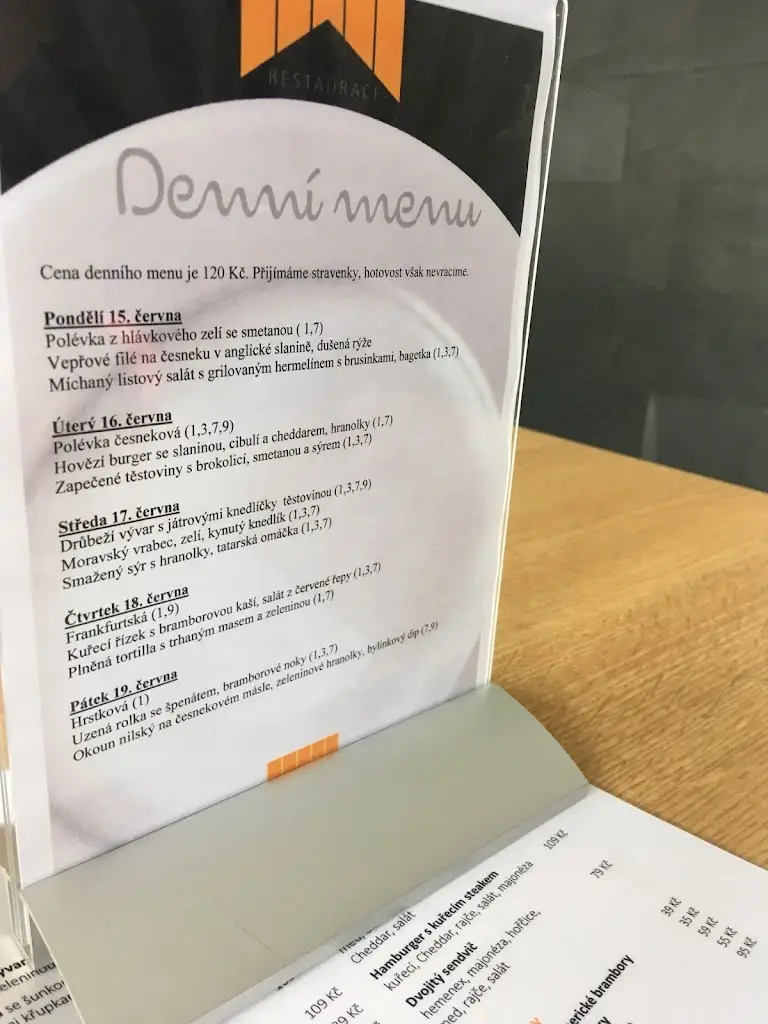 RESTAURACE
Denní menu
Cena denního menu je 120 Kč. Přijímáme stravenky, hotovost však nevracíme.
Pondělí 15. června
Polévka z hlávkového zelí se smetanou ( 1,7)
Vepřové filé na česneku v anglické slanině, dušená rýže
Míchaný listový salát s grilovaným hermelínem s brusinkami, bagetka (1,3,7)
Úterý 16. června
Polévka česneková (1,3,7,9)
Hovězí burger se slaninou, cibulí a cheddarem, hranolky (1,7)
Zapečené těstoviny s brokolicí, smetanou a sýrem (1,3,7)
Středa 17. června
Drůbeží vývar s játrovými knedlíčky těstovinou (1,3,7,9)
Moravský vrabec, zelí, kynutý knedlík (1,3,7)
Smažený sýr s hranolky, tatarská omáčka (1,3,7)
Čtvrtek 18. června
Frankfurtská (1,9)
Kuřecí řízek s bramborovou kaší, salát z červené řepy (1,3,7)
Plněná tortilla s trhaným masem a zeleninou (1,7)
Pátek 19. června
Hrstková (1)
Uzená rolka se špenátem, bramborové noky (1,3,7)
Okoun nilský na česnekovém másle, zeleninové hranolky, bylinkový dip (7,9)
Cheddar, salát
109 Kč
Hamburger s kuřecím steakem
kuřecí, Cheddar, rajče, salát, majonéza
79 Kč
Dvojitý sendvič
hemenex, majonéza, hořčice,
rajče, salát
109 Kč
39 Kč
35 Kč
59 Kč
55 Kč
95 Kč
brambory
se šunkou